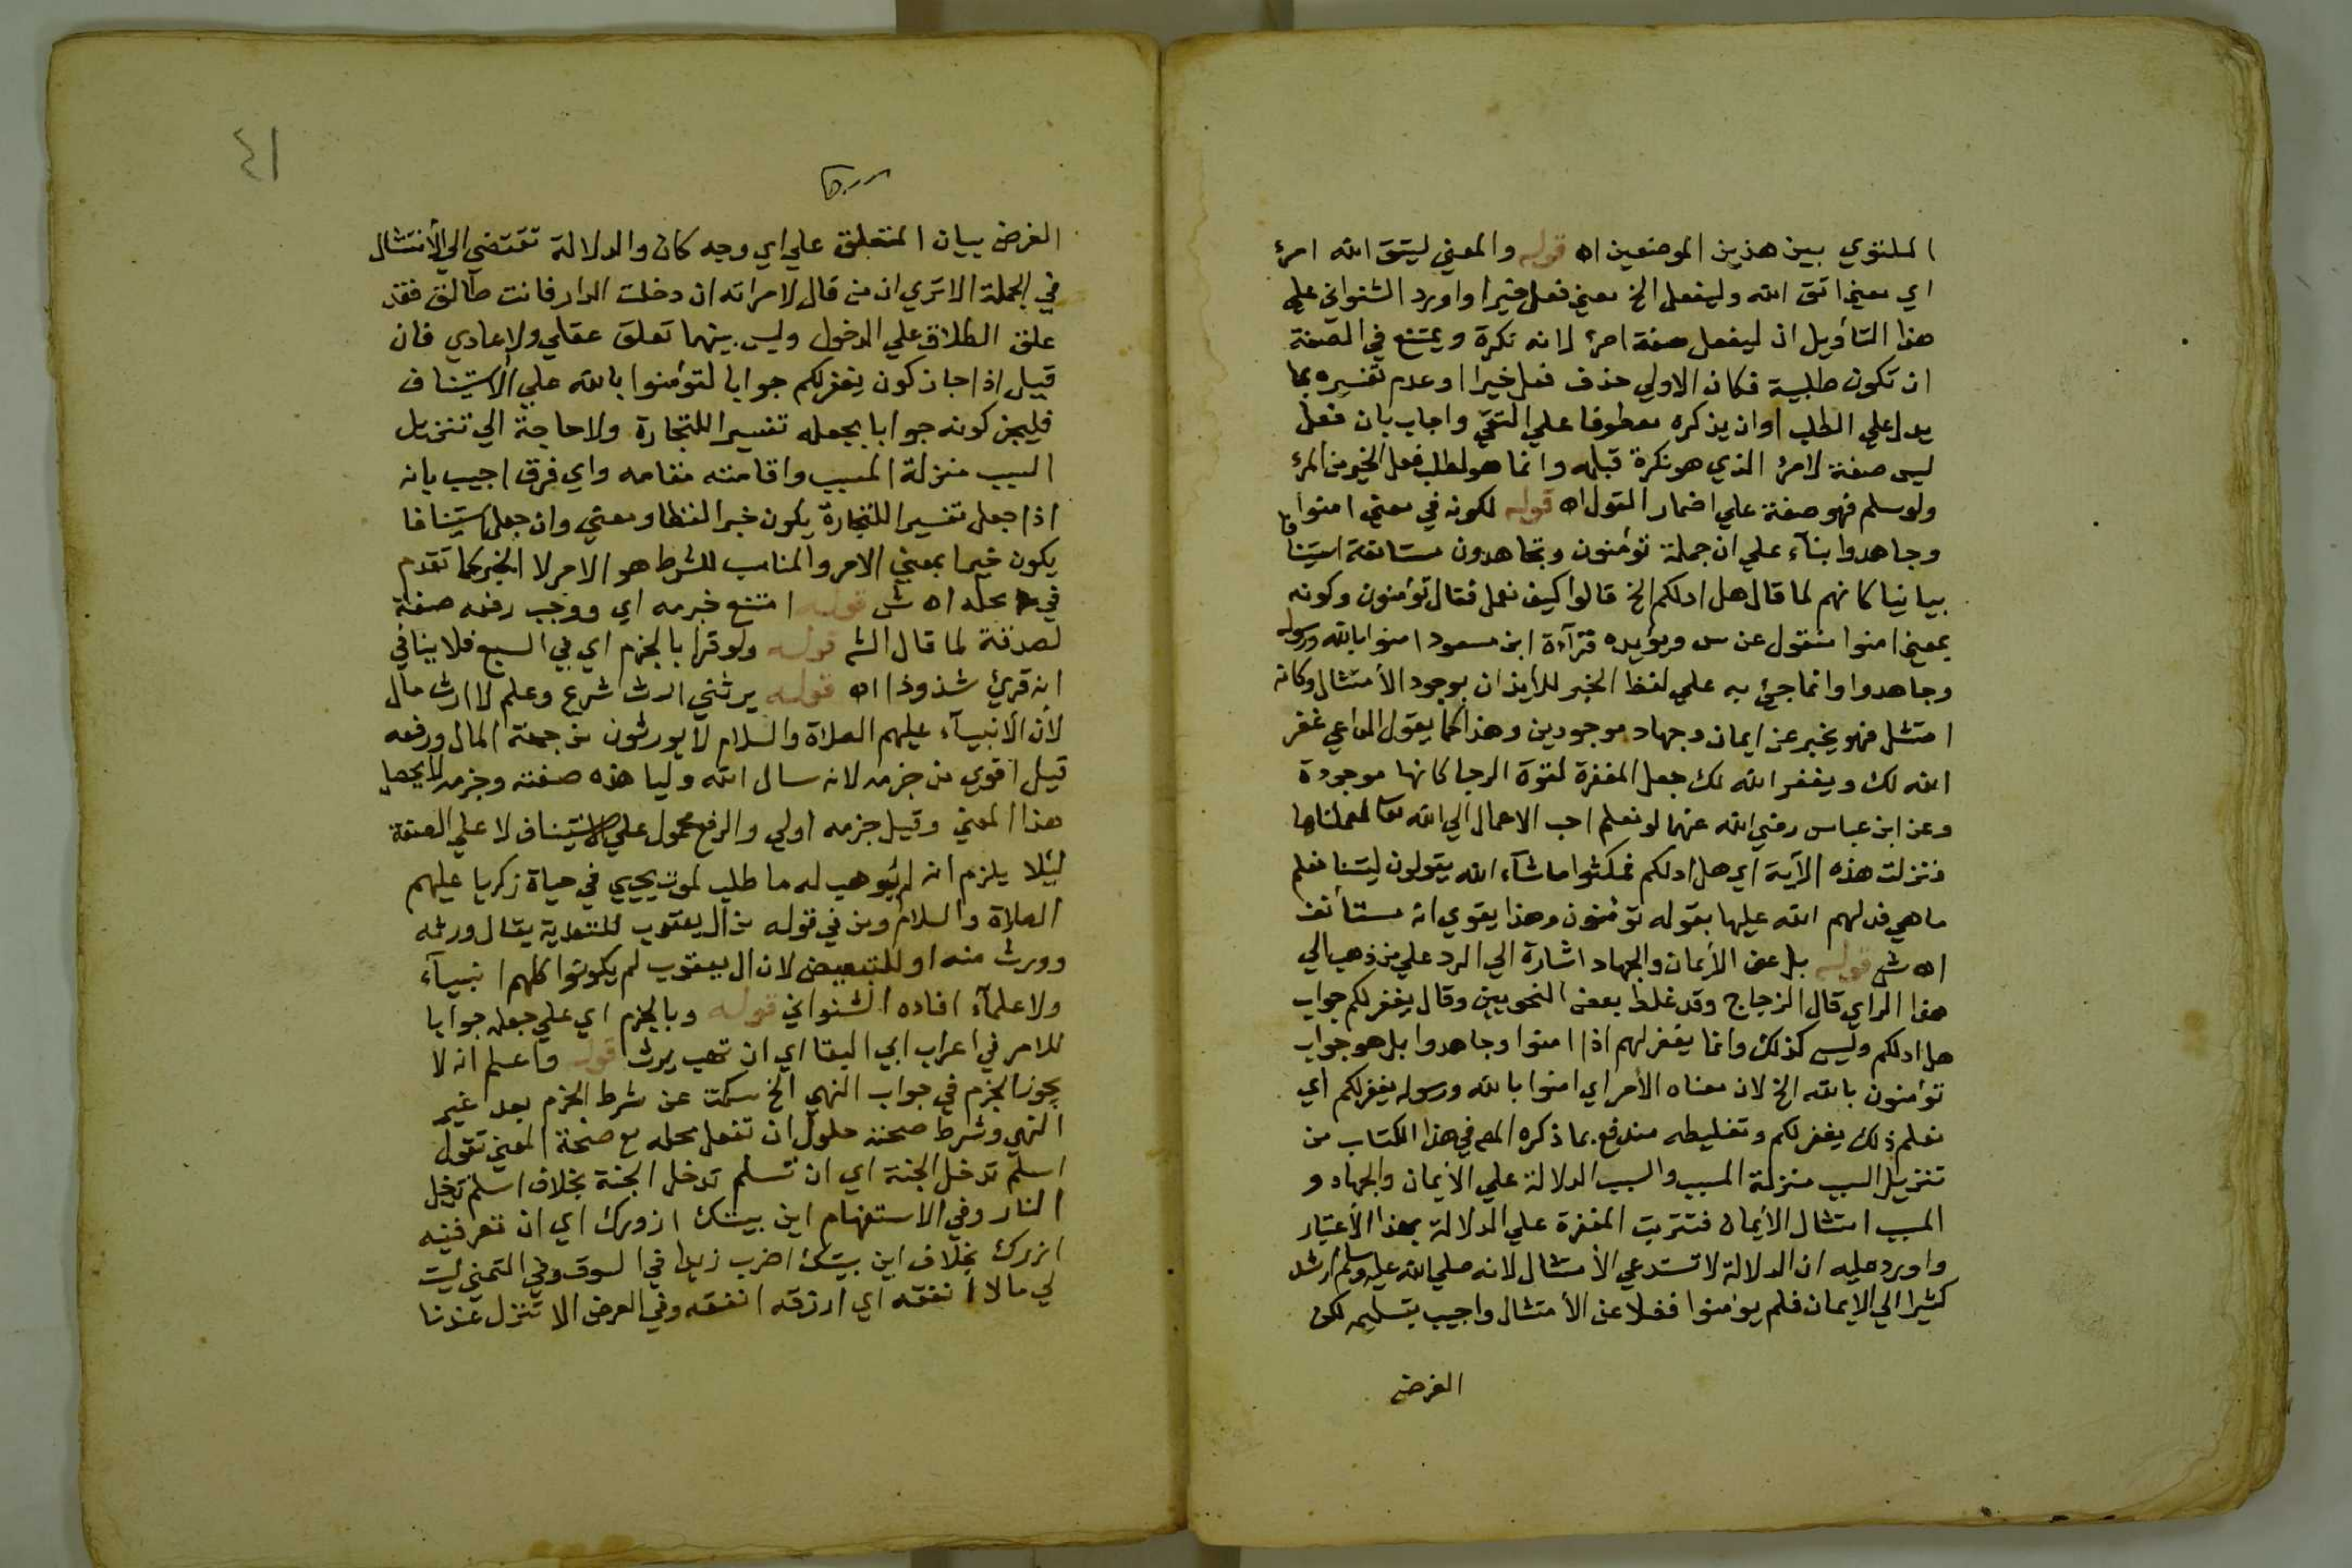 الملتوي بين هذين الموضعين اه قوله والمعني ليتق الله امرئ
اي معني اتق الله وليفعل الخ معني فعل خيرا واورد الشنواني علي
هذا التأويل ان ليفعل صفة امرئ لانه نكرة ويمتنع في الصفة
ان تكون طلبية فكان الاولي حذف فعل خيرا وعدم تفسيره بما
يدل علي الطلب اوان يذكره معطوفا علي اتقي واجاب بان فعل
ليس صفة لامرئ الذي هو نكرة قبله وانما هو لطلب فعل الخير من المرئ
ولو سلم فهو صفة علي اضمار القول اه قوله لكونه في معني امنوا
وجاهدوا بنآء علي ان جملة تؤمنون وتجاهدون مستانفة استينافا
بيانيا كانهم لما قال هل ادلكم الخ قالوا كيف نعمل فقال تؤمنون وكونه
بمعني امنوا منقول عن س ويؤيده قرآءة ابن مسعود امنوا بالله ورسوله
وجاهدوا وانما جئ به علي لفظ الخبر للايذان بوجود الأمتثال وكانه
امتثل فهو يخبر عن ايمان وجهاد موجودين وهذا كما يقول الداعي غفر
الله لك ويغفر الله لك جعل المغفرة لقوة الرجا كانها موجودة
وعن ابن عباس رضي الله عنهما لو نعلم احب الاعمال الي الله تعا لعملناها
فنزلت هذه الآية اي هل ادلكم فمكثوا ماشآء الله يقولون ليتنا نعلم
ما هي فدلهم الله عليها بقوله تؤمنون وهذا يقوي انه مستأنف
اه ش قوله بل عن الأيمان والجهاد اشارة الي الرد علي من ذهب الي
هذا الراي قال الزجاج وقد غلط بعض النحويين وقال يغفر لكم جواب
هل ادلكم وليس كذلك وانما يغفر لهم اذا امنوا وجاهدوا بل هو جواب
تؤمنون بالله الخ لان معناه الأمر اي امنوا بالله ورسوله يغفر لكم اي
نعلم ذلك يغفر لكم وتغليطه مندفع بما ذكره المص في هذا الكتاب من
تنزيل السبب منزلة المسبب والسبب الدلالة علي الأيمان والجهاد و
المسبب امتثال الأيمان فتترتب المغفرة علي الدلالة بهذا الأعتبار
واورد عليه ان الدلالة لا تستدعي الأمتثال لانه صلي الله عليه وسلم ارشد
كثيرا الي الايمان فلم يؤمنوا فضلا عن الأمتثال واجيب بتسليمه لكن
الغرض
٤١
الغرض بيان المتعلق علي اي وجه كان والدلالة تقتضي الي الأمتثال
في الجملة الا تري ان من قال لامراته ان دخلت الدار فانت طالق فقد
علق الطلاق علي الدخول وليس بينهما تعلق عقلي ولا عادي فان
قيل اذا جاز كون يغفر لكم جوابا لتؤمنوا بالله علي الأستيناف
فليجز كونه جوابا بجعله تفسيرا للتجارة ولا حاجة الي تنزيل
السبب منزلة المسبب واقامته مقامه واي فرق اجيب بانه
اذا جعل تفسيرا للتجارة يكون خبرا لفظا ومعني وان جعل استينافا
يكون خبرا بمعني الامر والمناسب للشرط هو الامر لا الخبر كما تقدم
في محله اه ش قوله امتنع جزمه اي ووجب رفعه صفة
لصدقة لما قال الش قوله ولو قرا بالجزم اي في السبع فلا ينافي
انه قرئ شذوذا اه قوله يرثني ارث شرع وعلم لا ارث مال
لأن الأنبيآء عليهم الصلاة والسلام لا يورثون من جهة المال ورفعه
قيل اقوي من جزمه لانه سال الله وليا هذه صفته وجزمه لا يحصل
هذا المعني وقيل جزمه اولي والرفع محمول علي الأستيناف لا علي الصفة
ليئلا يلزم انه لم يوهب له ما طلب لموت يحيي في حياة زكريا عليهم
الصلاة والسلام ومن في قوله من ال يعقوب للتعدية يقال ورثه
وورث منه او للتبعيض لان ال يعقوب لم يكونوا كلهم انبيآء
ولا علمآء افاده الشنواني قوله وبالجزم اي علي جعله جوابا
للامر في اعراب ابي البقا اي ان تهب يرث قوله واعلم انه لا
يجوز الجزم في جواب النهي الخ سكت عن شرط الجزم بعد غير
النهي وشرط صحته حلول ان تفعل محله مع صحة المعني تقول
اسلم تدخل الجنة اي ان تسلم تدخل الجنة بخلاف اسلم تدخل
النار وفي الاستفهام اين بيتك ازورك اي ان تعرفنيه
ازرك بخلاف اين بيتك اضرب زيدا في السوق وفي التمني ليت
لي مالا انفقه اي ارزقه انفقه وفي العرض الا تنزل عندنا